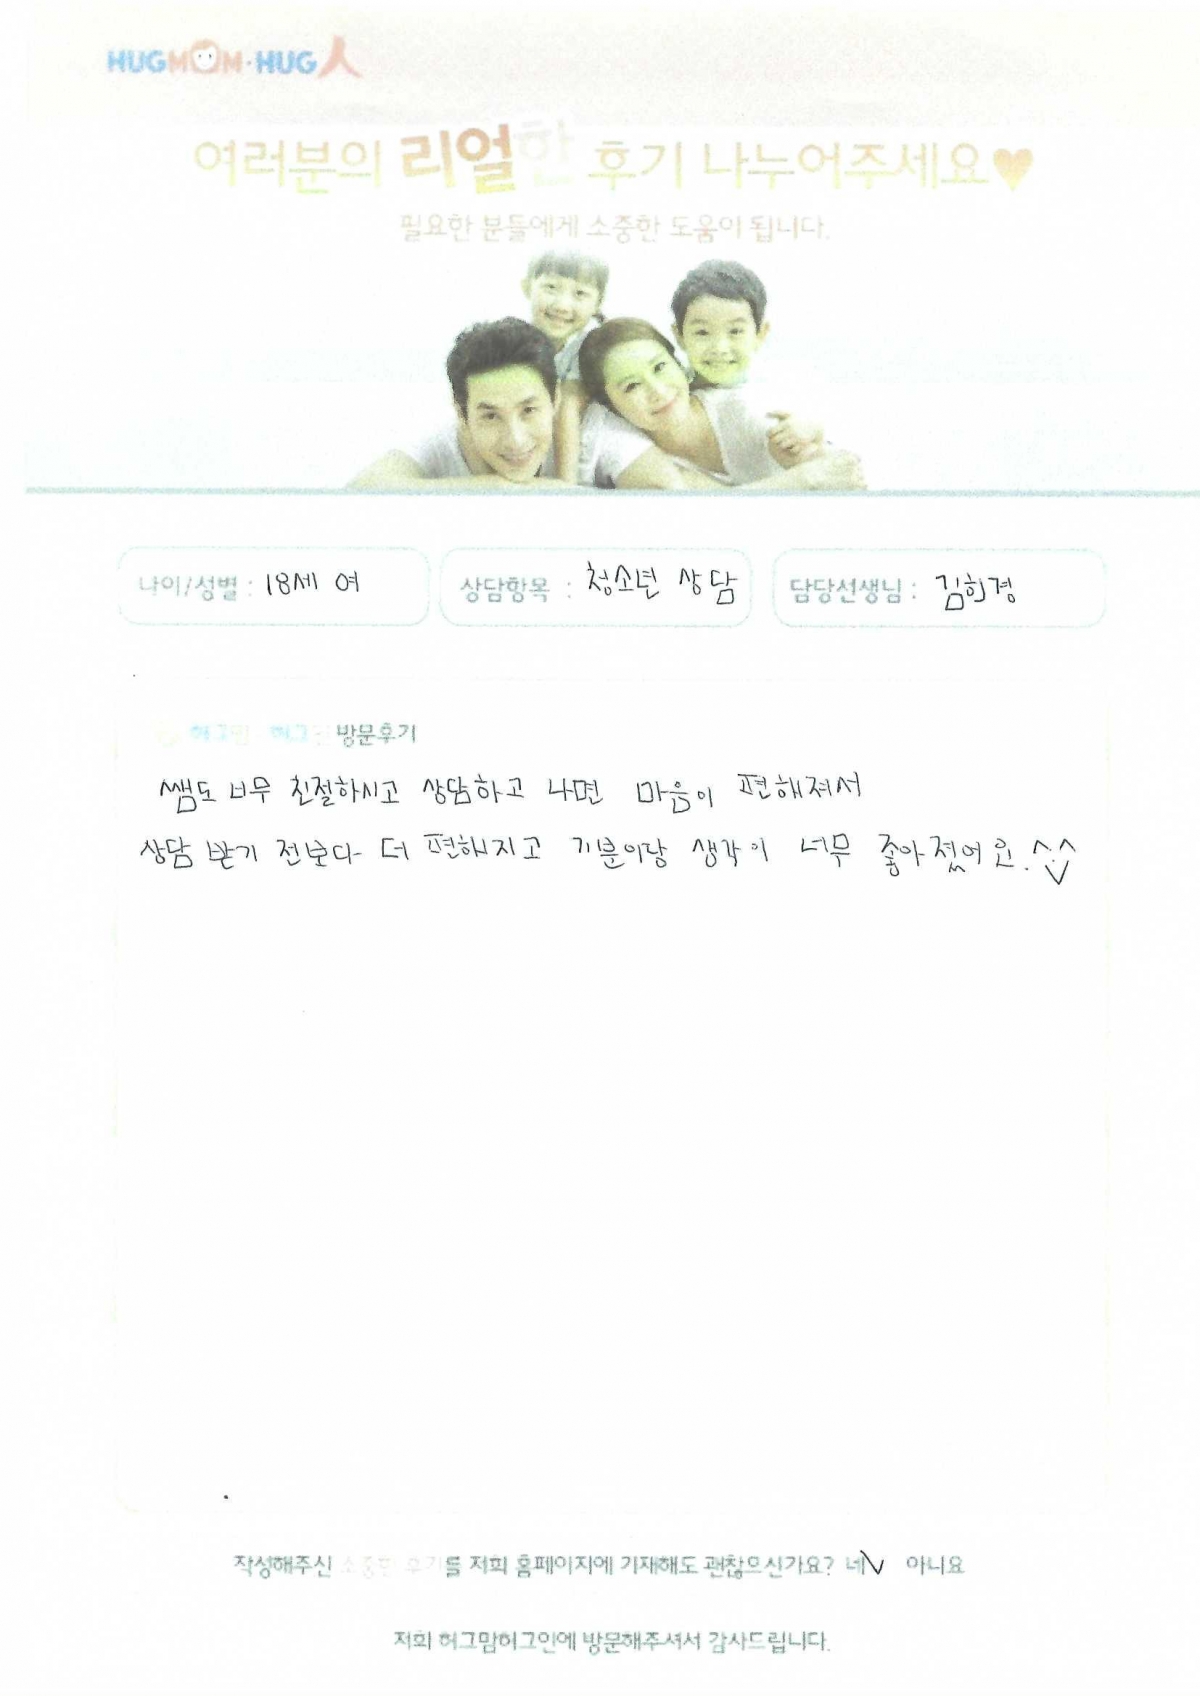 HUGMOM·HUG人
여러분의 리얼한 후기 나누어주세요♥
필요한 분들에게 소중한 도움이 됩니다.
나이/성별 : 18세 여
상담항목 : 청소년 상담
담당선생님 : 김희경
허그맘 허그인 방문후기
쌤도 너무 친절하시고 상담하고 나면 마음이 편해져서
상담 받기 전보다 더 편해지고 기분이당 생각이 너무 좋아졌어요.^^
작성해주신 소중한 후기를 저희 홈페이지에 기재해도 괜찮으신가요? 네√ 아니요
저희 허그맘허그인에 방문해주셔서 감사드립니다.